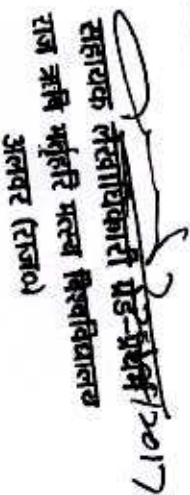 सहायक लेखाधिकारी ग्रेड-प्रथम
राज ऋषि भर्तृहरि मत्स्य विश्वविद्यालय
अलवर (राज०)